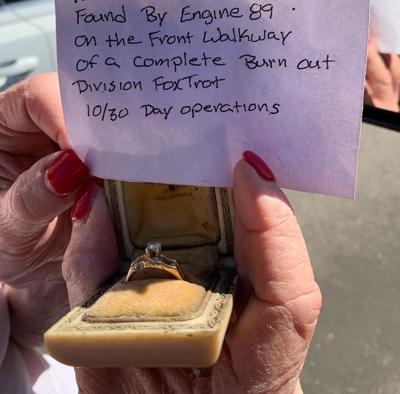 Found By Engine 89.
on the Front Walkway
of a complete Burn out
Division FoxTrot
10/30 Day operations